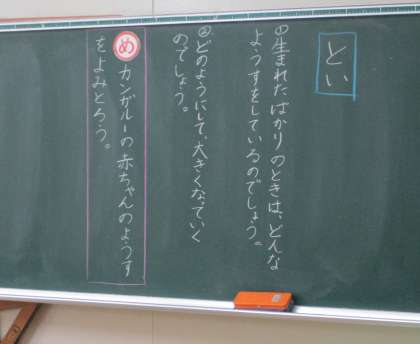 とい
①生まれたばかりのときは、どんな
ようすをしているのでしょう。
②どのようにして、大きくなっていく
のでしょう。
め カンガルーの赤ちゃんのようす
をよみとろう。